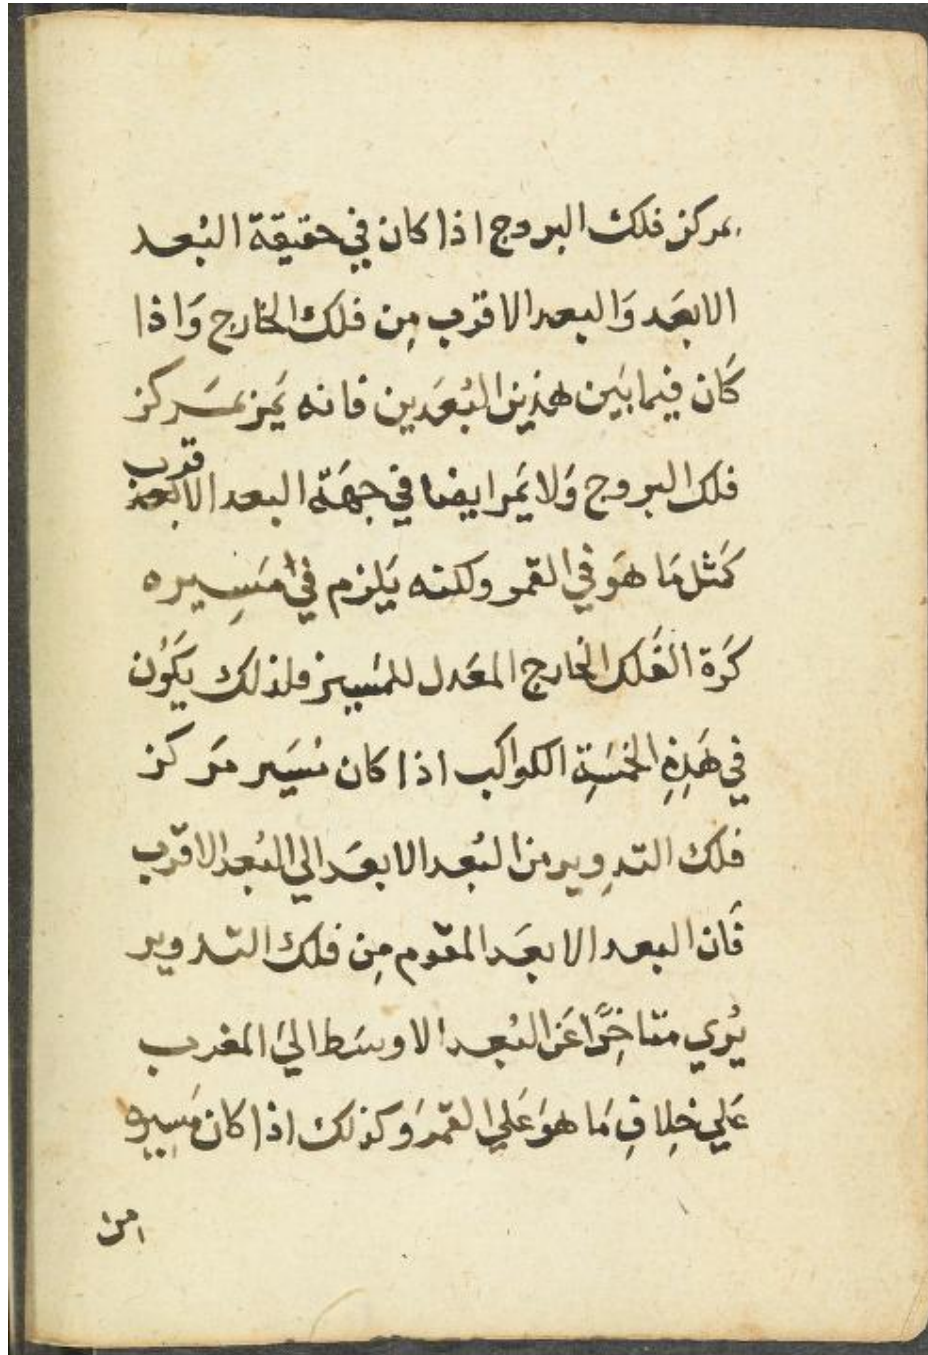 بمركز فلك البروج اذا كان في حقيقة البُعد
الابعَد وَالبعد الاقرَب مِن فلك الخارج وَاذا
كَان فيما بَين هذين البُعَدين فانه يَمر بمَركز
فلك البروج وَلا يَمر ايضا في جهَة البعد الاقرب
كَمثل مَا هوَ في القمر ولكنه يَلزم في مَسِيره
كَرة الفَلك الخارج المعَدل للمَسير فلذلك يَكُون
في هَذِهِ الخمسَةِ الكواكب اذا كان مَسَير مَركز
فلك التدوِير من البُعد الابعَد الي البُعد الاقرب
فَان البعد الابعَد المقوم مِن فلك التدوير
يُري متاخِرًا عَن البُعد الاوسَط اليَ المغرب
عَلي خلِافِ مَا هوَ عَلي القمَر وَكذلك اذا كان مَسِيره
من